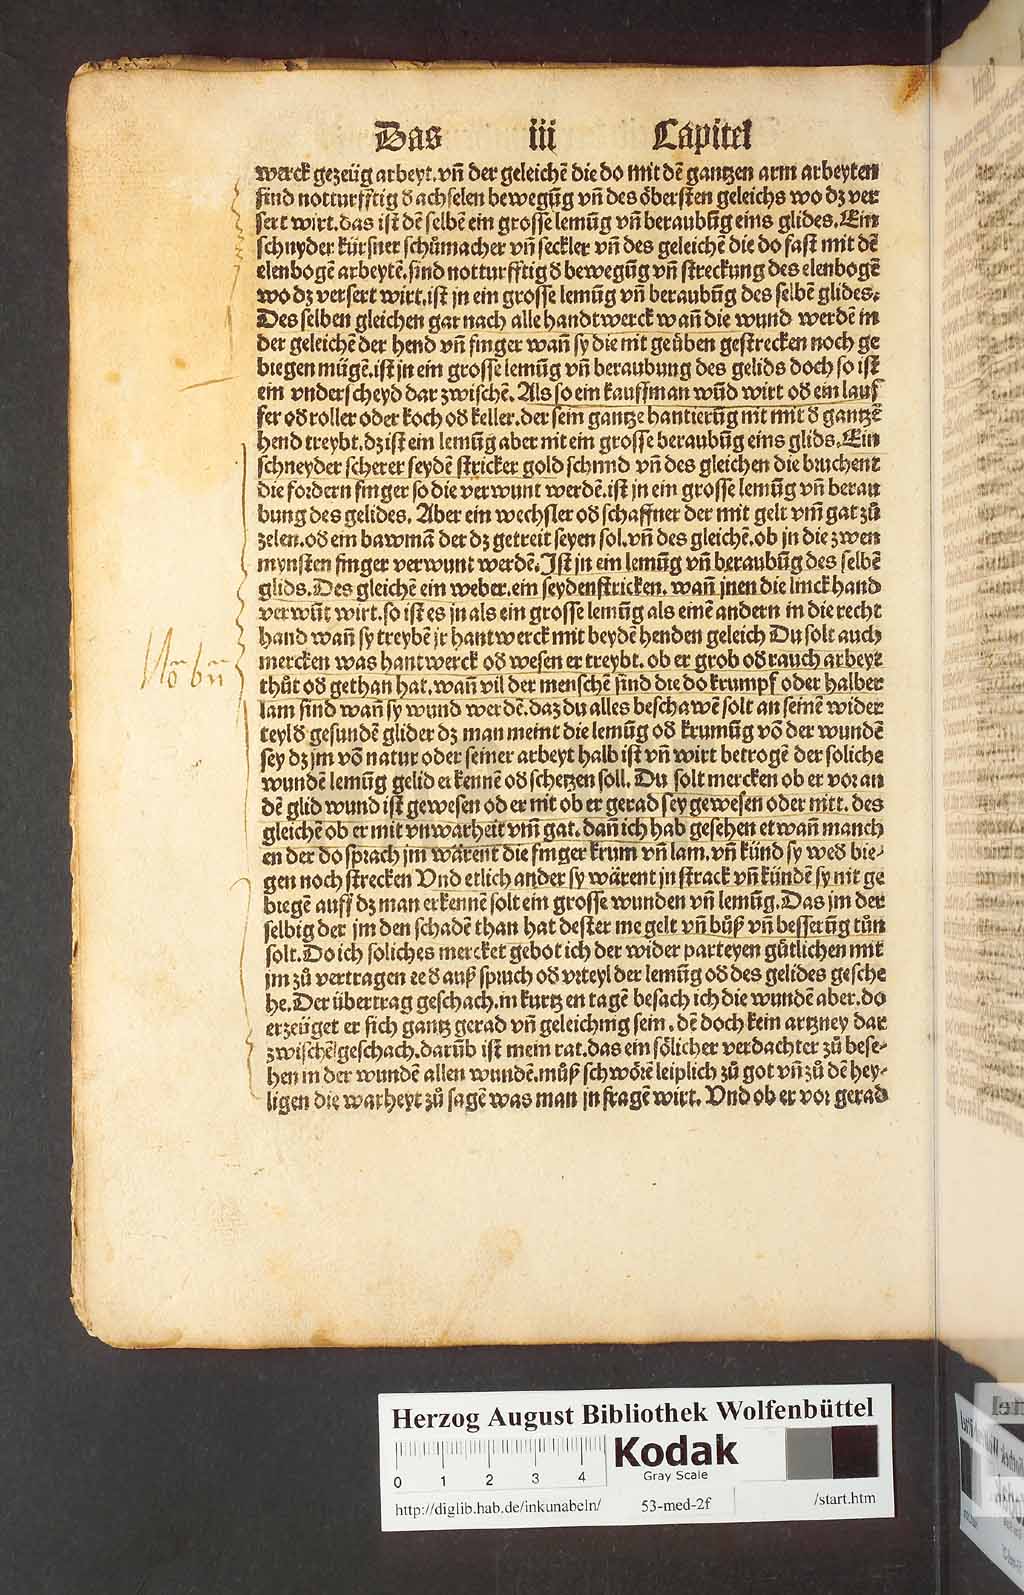 Das iii Capitel
werck gezeüg arbeyt. vn̄ der geleichē die do mit dē gantzen arm arbeyten
sind notturfftig d̕ achselen bewegūg vn̄ des öbersten geleichs wo dz ver
sert wirt. das ist dē selbē ein grosse lemūg vn̄ beraubūg eins glides. Ein
schnyder kürsner schůmacher vn̄ seckler vn̄ des geleichē die do fast mit dē
elenbogē arbeytē. sind notturfftig d̕ bewegūg vn̄ streckung des elenbogē
wo dz versert wirt. ist jn ein grosse lemūg vn̄ beraubūg des selbē glides.
Des selben gleichen gar nach alle handtwerck wan̄ die wund werdē in
der geleichē der hend vn̄ finger wan̄ sy die nit geůben gestrecken noch ge
biegen mügē. ist jn ein grosse lemūg vn̄ beraubung des gelids doch so ist
ein vnderscheyd dar zwischē. Als so ein kauffman wūd wirt od̕ ein lauf
fer od̕ roller oder koch od̕ keller. der sein gantze hantierūg nit mit d̕ gantzē
hend treybt. dz ist ein lemūg aber nit ein grosse beraubūg eins glids. Ein
schneyder scherer seydē stricker gold schmid vn̄ des gleichen die bruchent
die fordern finger so die verwunt werdē. ist jn ein grosse lemūg vn̄ berau
bung des gelides. Aber ein wechsler od̕ schaffner der mit gelt vm̄ gat zů
zelen. od̕ ein bawmā der dz getreit seyen sol. vn̄ des gleichē. ob jn die zwen
mynsten finger verwunt werdē. Ist jn ein lemūg vn̄ beraubūg des selbē
glids. Des gleichē ein weber. ein seydenstricken. wan̄ jnen die linck hand
verwūt wirt. so ist es jn als ein grosse lemūg als einē andern in die recht
hand wan̄ sy treybē jr hantwerck mit beydē henden geleich Du solt auch
mercken was hantwerck od̕ wesen er treybt. ob er grob od̕ rauch arbeyt
thůt od̕ gethan hat. wan̄ vil der menschē sind die do krumpf oder halber
lam sind wan̄ sy wund werdē. daz du alles beschawē solt an seinē wider
teyl d̕ gesundē glider dz man meint die lemūg od̕ krumūg vō der wundē
sey dz jm vō natur oder seiner arbeyt halb ist vn̄ wirt betrogē der soliche
wundē lemūg gelid erkennē od̕ schetzen soll. Du solt mercken ob er vor an
dē glid wund ist gewesen od er nit ob er gerad sey gewesen oder nitt. des
gleichē ob er mit vnwarheit vm̄ gat. dan̄ ich hab gesehen etwan̄ manch
en der do sprach jm wärent die finger krum vn̄ lam. vn̄ künd sy wed̕ bie⸗
gen noch strecken Vnd etlich ander sy wärent jn strack vn̄ kündē sy nit ge
biegē auff dz man erkennē solt ein grosse wunden vn̄ lemūg. Das jm der
selbig der jm den schadē than hat dester me gelt vn̄ bůß vn̄ besserūg tůn
solt. Do ich soliches mercket gebot ich der wider parteyen gůtlichen mit
jm zů vertragen ee d̕ auß spruch od̕ vrteyl der lemūg od̕ des gelides gesche
he. Der übertrag geschach. in kurtzen tagē besach ich die wundē aber. do
erzeüget er sich gantz gerad vn̄ geleichig sein. dē doch kein artzney dar
zwischē geschach. darūb ist mein rat. das ein sölicher verdachter zů bese⸗
hen in der wundē allen wundē. můß schwörē leiplich zů got vn̄ zů dē hey⸗
ligen die warheyt zů sagē was man jn fragē wirt. Vnd ob er vor gerad
Herzog August Bibliothek Wolfenbüttel
Kodak
Gray Scale
0 1 2 3 4
http://diglib.hab.de/inkunabeln/ 53-med-2f /start.htm